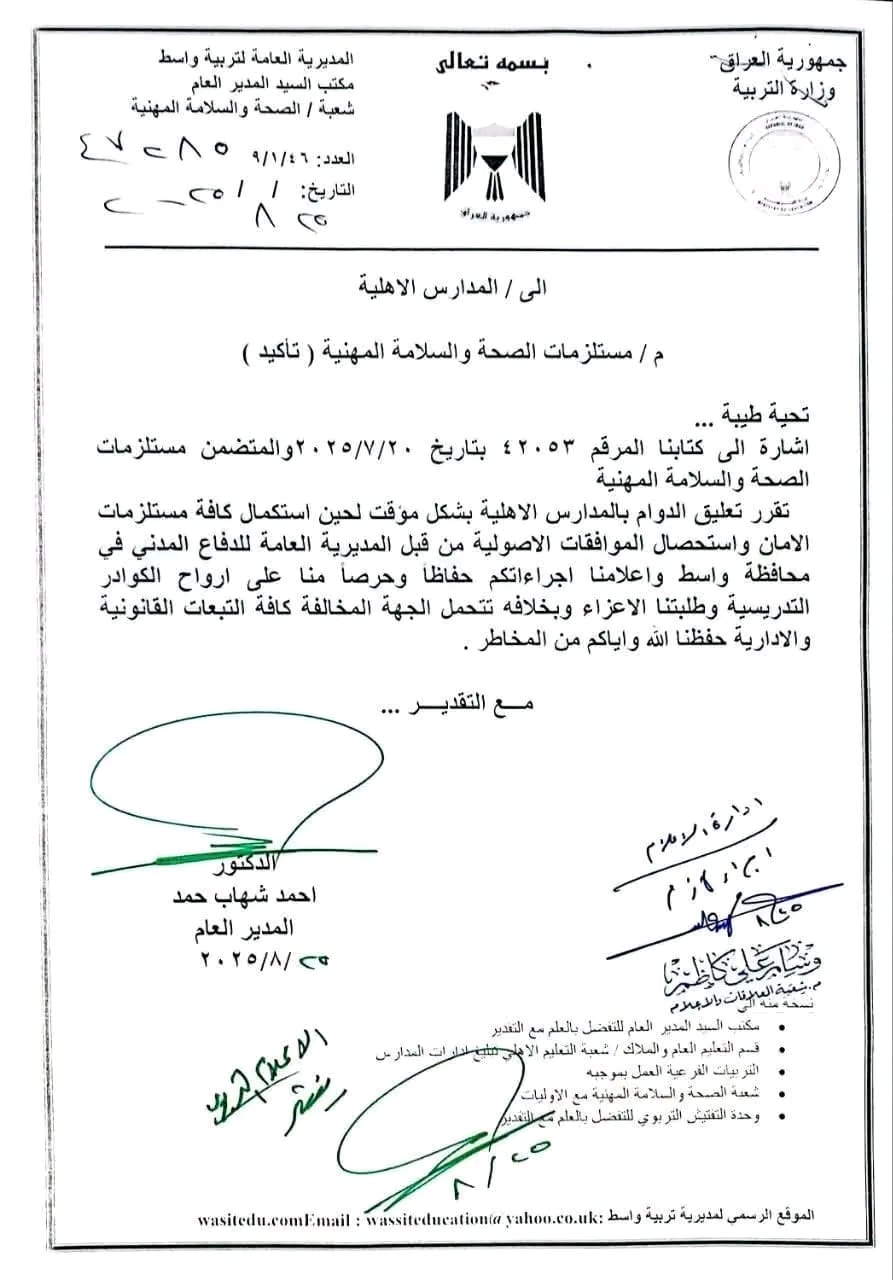 بسمه تعالى
جمهورية العراق
وزارة التربية
المديرية العامة لتربية واسط
مكتب السيد المدير العام
شعبة / الصحة والسلامة المهنية
العدد: ٩/١/٤٦
التاريخ: / /
جمهورية العراق
الى / المدارس الاهلية
م / مستلزمات الصحة والسلامة المهنية ( تأكيد )
تحية طيبة ...
اشارة الى كتابنا المرقم ٤٢٠٥٣ بتاريخ ٢٠٢٥/٧/٢٠والمتضمن مستلزمات
الصحة والسلامة المهنية
تقرر تعليق الدوام بالمدارس الاهلية بشكل مؤقت لحين استكمال كافة مستلزمات
الامان واستحصال الموافقات الاصولية من قبل المديرية العامة للدفاع المدني في
محافظة واسط واعلامنا اجراءاتكم حفاظاً وحرصاً منا على ارواح الكوادر
التدريسية وطلبتنا الاعزاء وبخلافه تتحمل الجهة المخالفة كافة التبعات القانونية
والادارية حفظنا الله واياكم من المخاطر .
مـــع التقديـــر ...
الدكتور
احمد شهاب حمد
المدير العام
٢٠٢٥/٨/٢٥
ادارة الاعلام
٨/٢٥
وسام علي كاظم
م. شعبة العلاقات والاعلام
نسخة منه الى
• مكتب السيد المدير العام للتفضل بالعلم مع التقدير
• قسم التعليم العام والملاك / شعبة التعليم الاهلي لتبليغ ادارات المدارس
• التربيات الفرعية العمل بموجبه
• شعبة الصحة والسلامة المهنية مع الاوليات
• وحدة التفتيش التربوي للتفضل بالعلم مع التقدير
٨/٢٥
الموقع الرسمي لمديرية تربية واسط :wasitedu.comEmail : wassiteducation@yahoo.co.uk